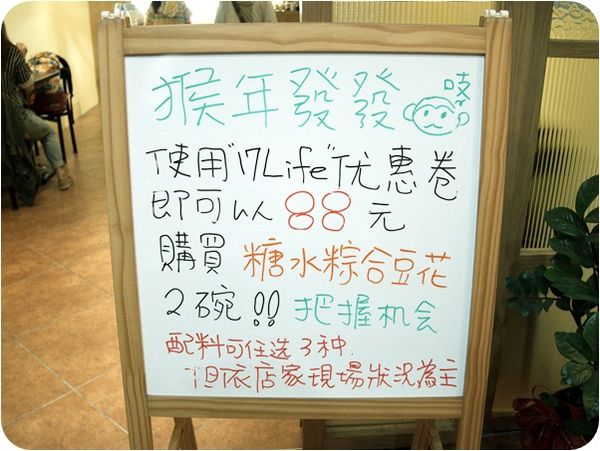 猴年發發 吱
使用"17Life"优惠卷
即可以 88 元
購買 糖水粽合豆花
2碗!! 把握机会
配料可任选3种.
但依店家現場狀況為主